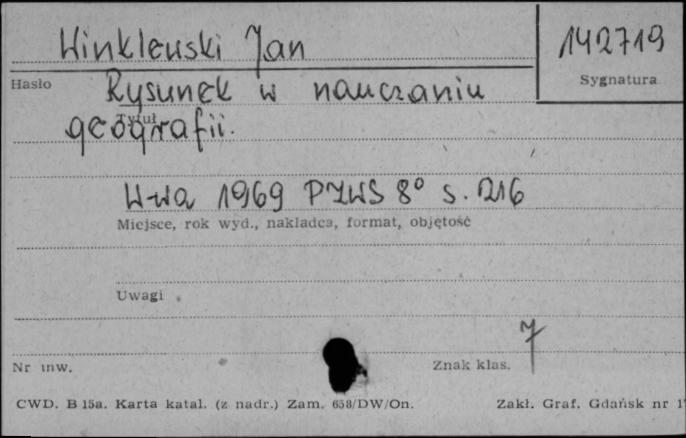 Winklewski Jan
142719
Hasło
Sygnatura
Rysunek w nauczaniu
Tytuł
geografii.
W-wa 1969 PZWS 8° s. 216
Miejsce, rok wyd., nakładca, format, objętość
Uwagi
7
Nr inw.
Znak klas.
CWD. B 15a. Karta katal. (z nadr.) Zam. 658/DW/On.
Zakł. Graf. Gdańsk nr